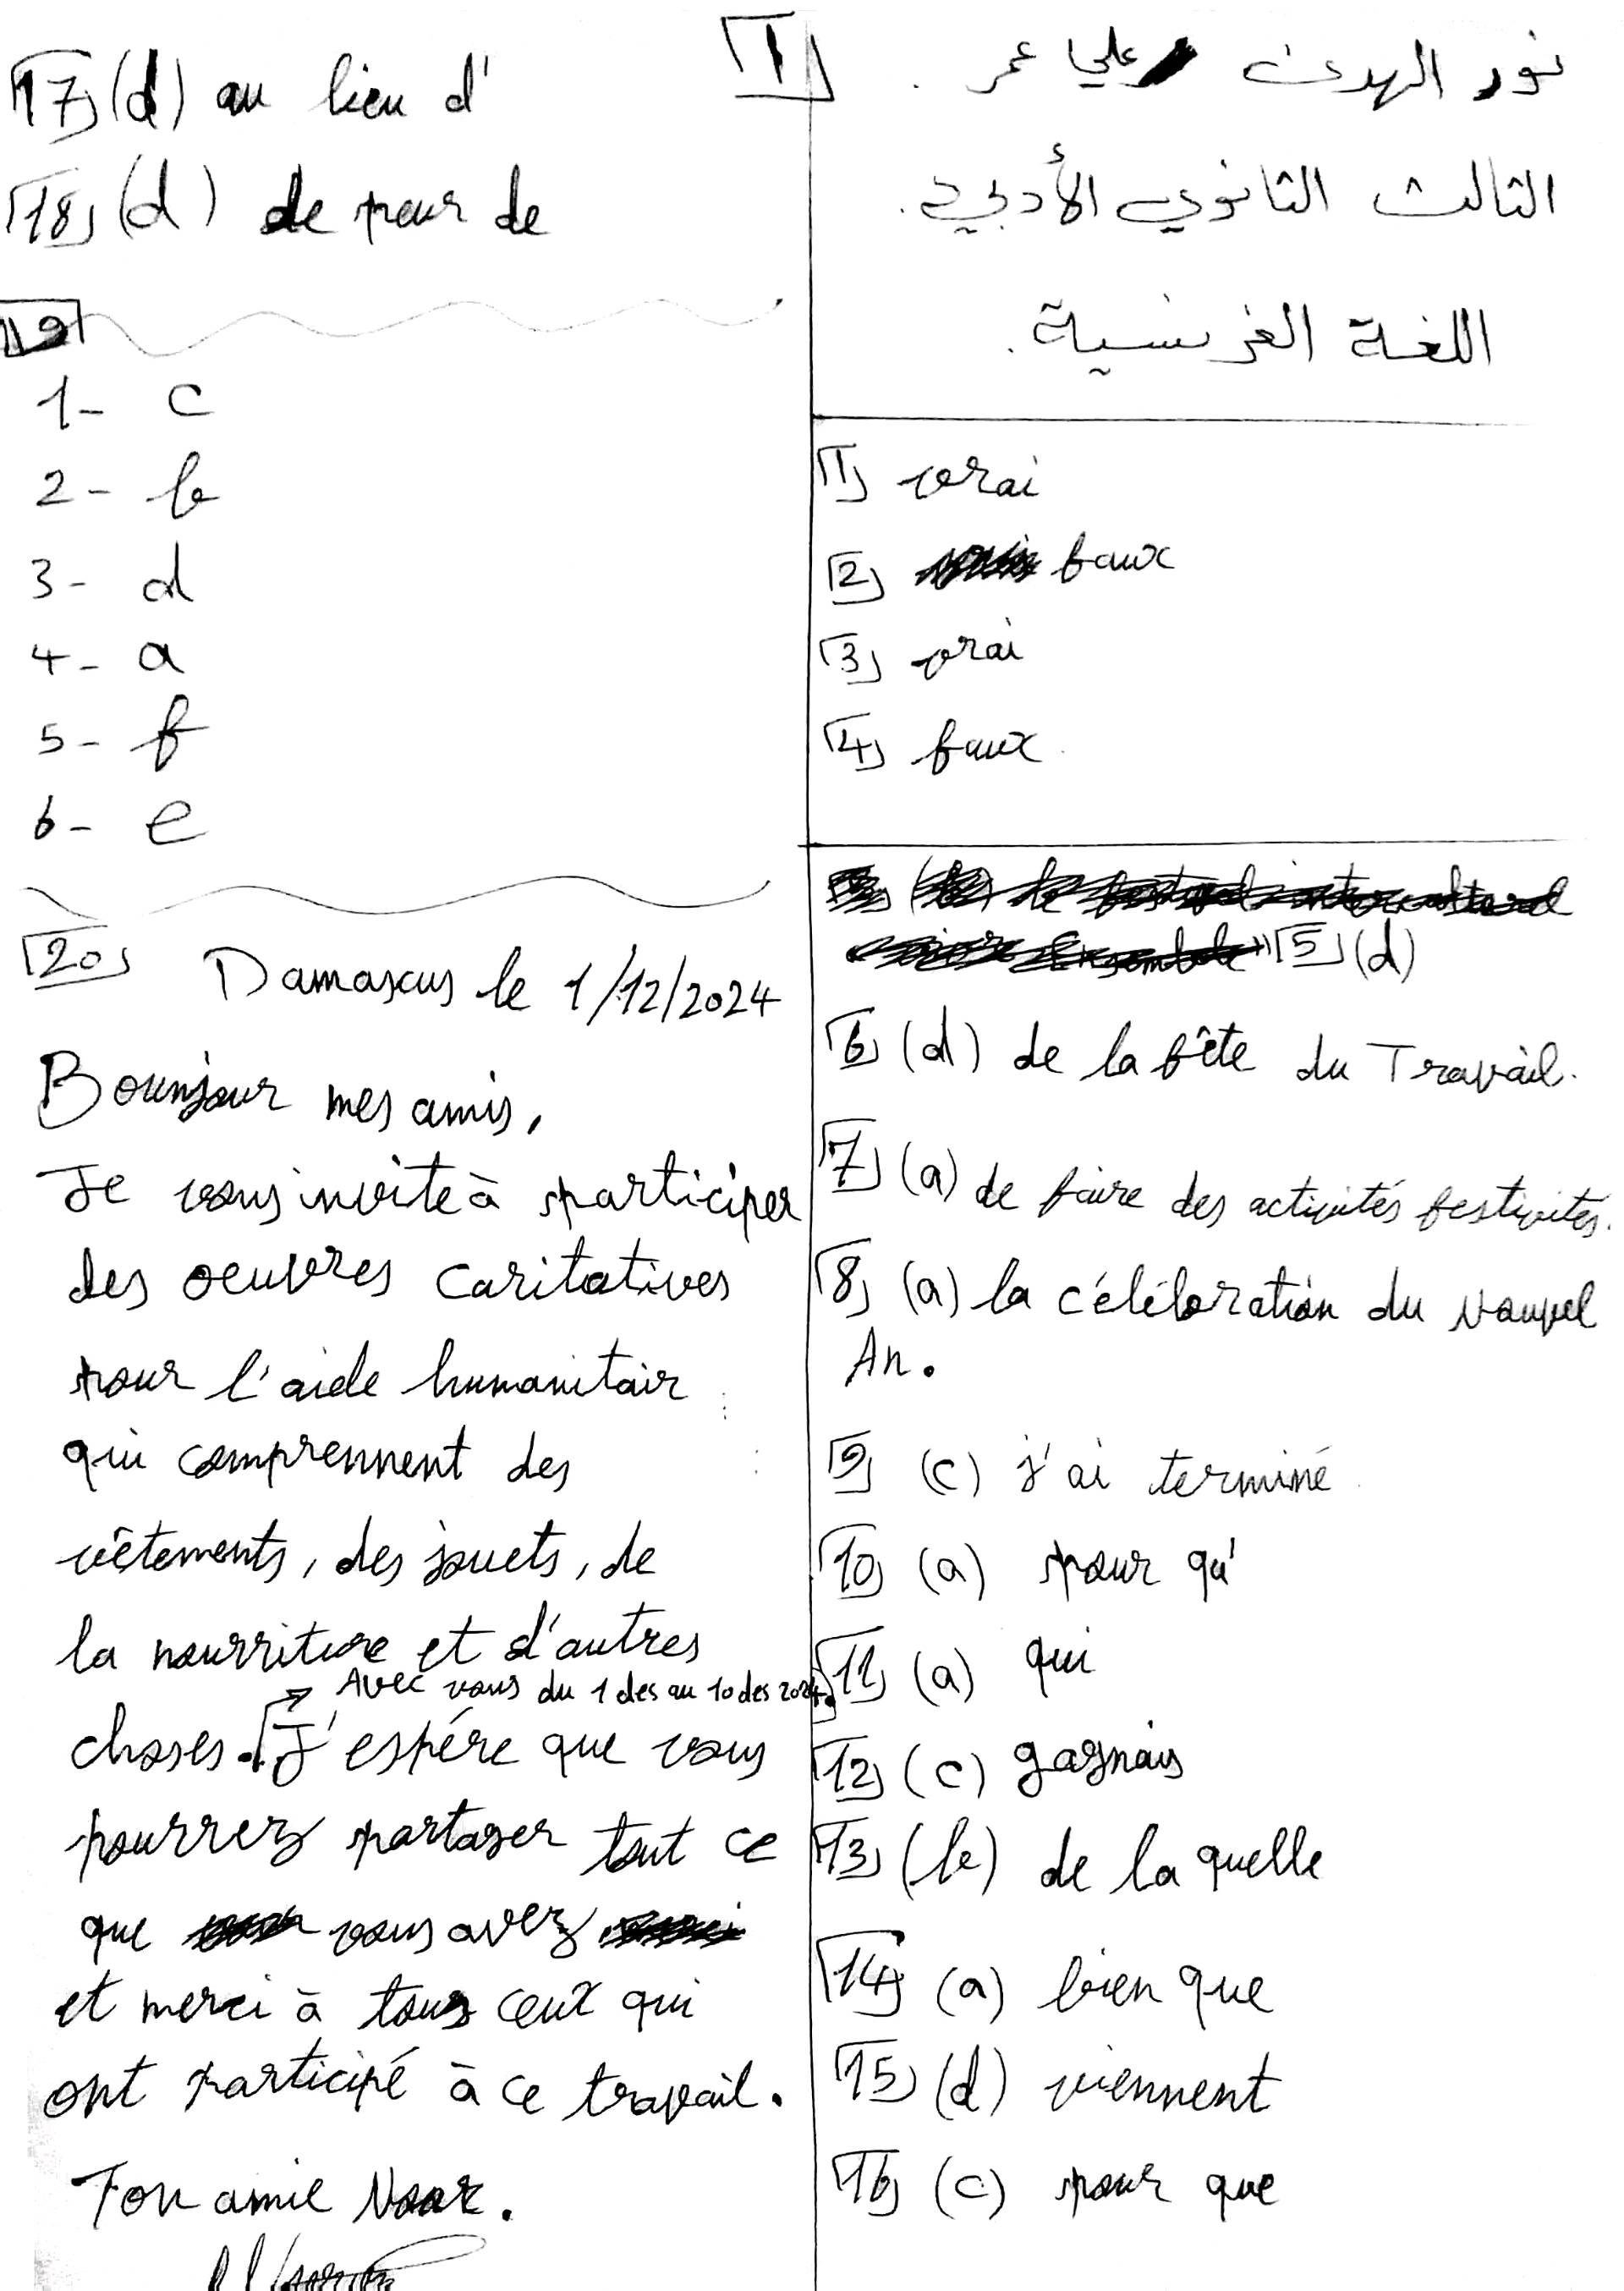 1
نور الهدى علي عمر .
الثالث الثانوي الأدبي .
اللغة الفرنسية .
1 vrai
2 faux
3 vrai
4 faux
5 (d)
6 (d) de la fête du Travail.
7 (a) de faire des activités festivités.
8 (a) la célébration du Nouvel
An.
9 (c) j'ai terminé
10 (a) pour qu'
11 (a) qui
12 (c) gagnais
13 (b) de la quelle
14 (a) bien que
15 (d) viennent
16 (c) pour que
17 (d) au lieu d'
18 (d) de peur de
19
1- c
2- b
3- d
4- a
5- f
6- e
20 Damascus le 1/12/2024
Bounjour mes amis,
Je vous invite à participer
des oeuvres caritatives
pour l'aide humanitair
qui comprennent des
vêtements, des jouets, de
la nourriture et d'autres
Avec vous du 1 des au 10 des 2024.
choses. J'espére que vous
pourrez partager tout ce
que vous avez
et merci à tous ceux qui
ont participé à ce travail.
Ton amie Nour.